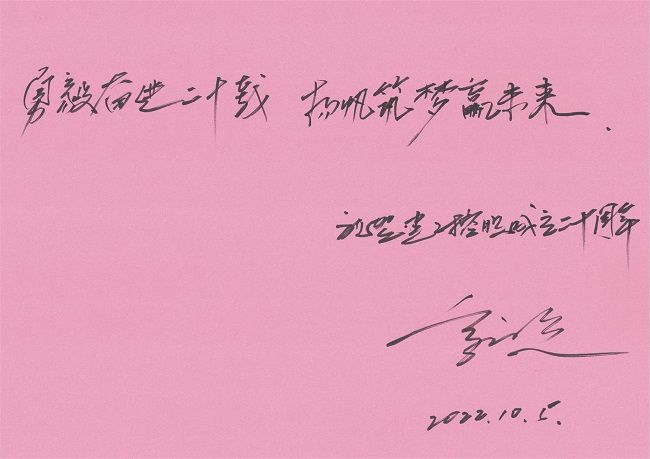 勇毅奋进二十载 扬帆筑梦赢未来.
祝贺建工控股成立二十周年
2022.10.5.